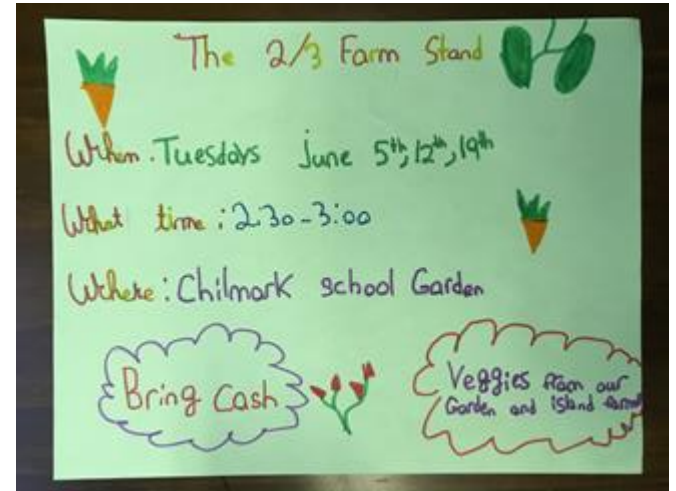 The 2/3 Farm Stand
When. Tuesdays June 5th, 12th, 19th
What time: 2:30-3:00
Where: Chilmark school Garden
Bring Cash
Veggies from our
Garden and island farms